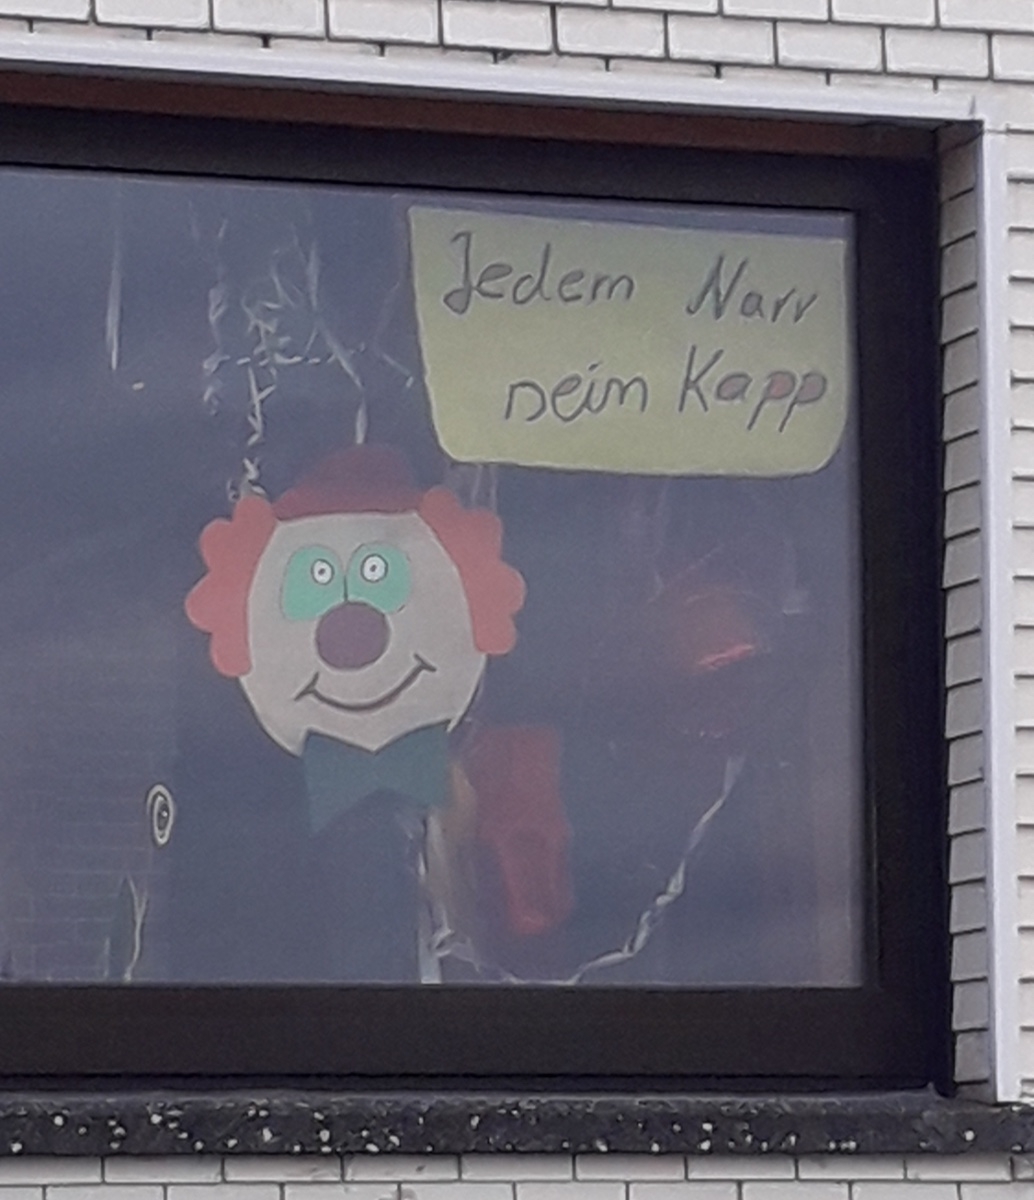 Jedem Narr
sein Kapp